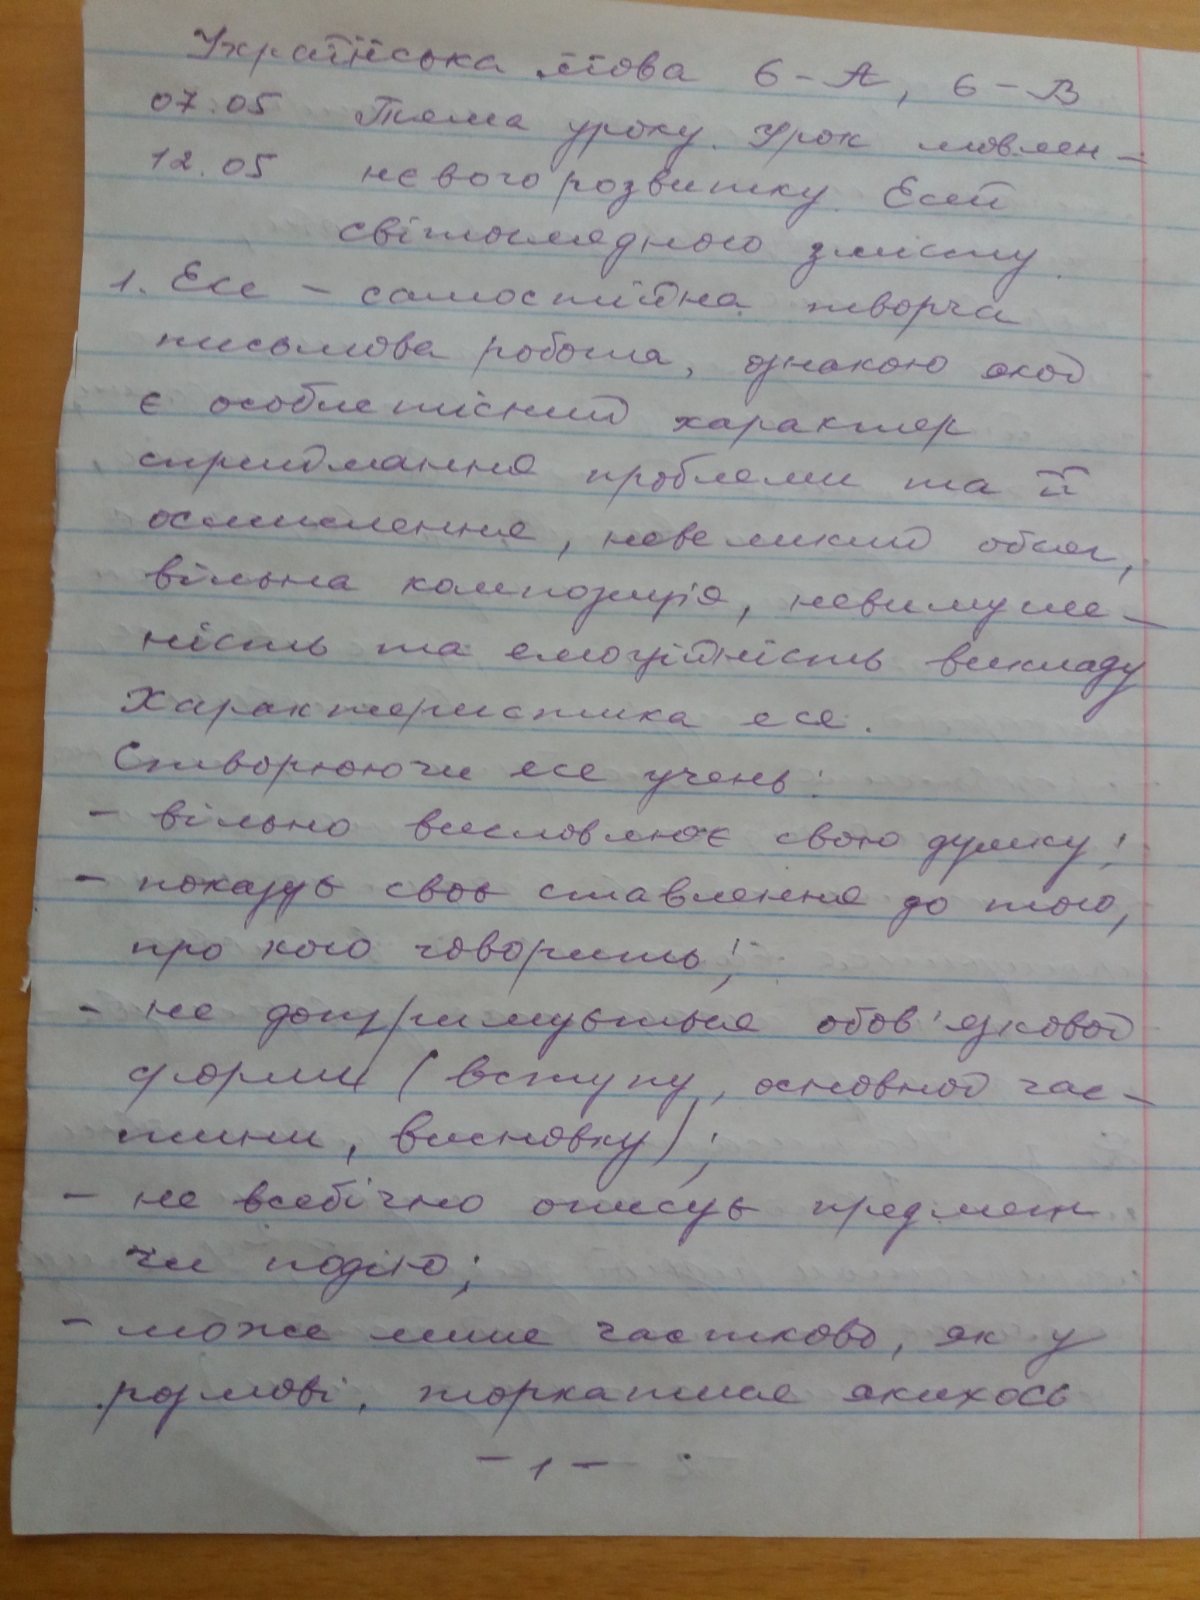 Українська мова 6-А, 6-В
07.05 Тема уроку. Урок мовлен-
12.05 нєвого розвитку. Есей
світоглядного змісту.
1. Есе - самостійна творча
письмова робота, ознакою якої
є особистісний характер
сприймання проблеми та її
осмислення, невеликий обсяг,
вільна композиція, невимуше-
ність та емоційність викладу
Характеристика есе.
Створюючи есе учень:
- вільно висловлює свою думку;
- показує своє ставлення до того,
про кого говорить;
- не дотримується обов'язкової
форми (вступу, основної час-
тини, висновку);
- не всебічно описує предмет
чи подію;
- може лише частково, як у
розмові, торкатися якихось
- 1 -